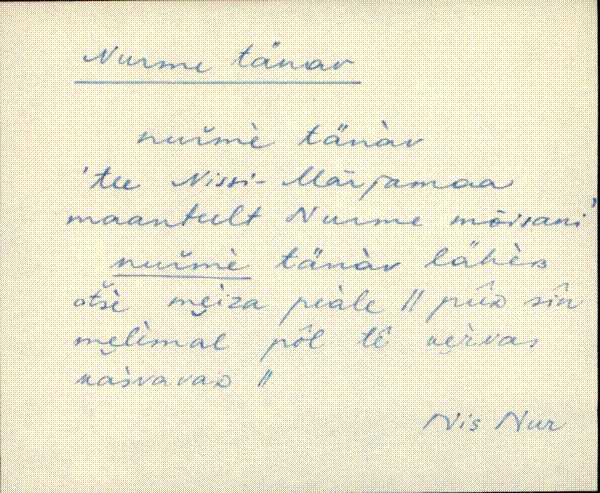 Nurme tänav
nuřmè tänàv
'tee Nissi-Märjamaa
maanteelt Nurme mõisani'
nuřmè tänàv lähèʙ
otśè mẹiza piäle || pûᴅ sîn
mẹlèmal pôl tê ᴋẹ̀rvas
ᴋàsvavaᴅ ||
Nis Nur